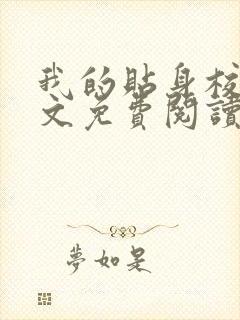 我的貼身校
文免費閱讀
夢如是